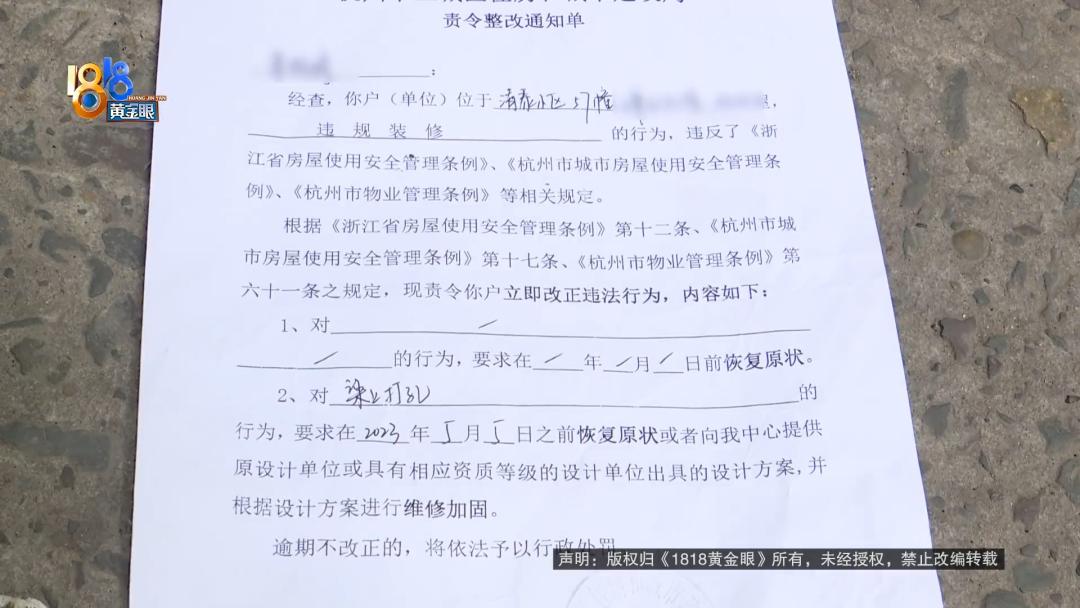 责令整改通知单
:
1818
HUANG JIN YAN
黄金眼
经查，你户（单位）位于 清泰小区 17幢
违 规 装 修 的行为，违反了《浙
江省房屋使用安全管理条例》、《杭州市城市房屋使用安全管理条
例》、《杭州市物业管理条例》等相关规定。
根据《浙江省房屋使用安全管理条例》第十二条、《杭州市城
市房屋使用安全管理条例》第十七条、《杭州市物业管理条例》第
六十一条之规定，现责令你户立即改正违法行为，内容如下：
1、对 /
/ 的行为，要求在 / 年 / 月 / 日前恢复原状。
2、对 梁上打孔 的
行为，要求在 2023 年 5 月 5 日之前恢复原状或者向我中心提供
原设计单位或具有相应资质等级的设计单位出具的设计方案，并
根据设计方案进行维修加固。
逾期不改正的，将依法予以行政处罚
声明：版权归《1818黄金眼》所有，未经授权，禁止改编转载